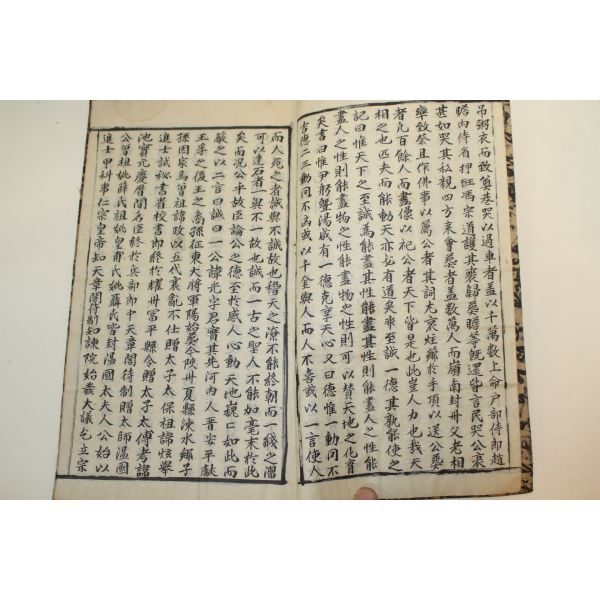 吊粥衣而致奠巷哭以過車者盖以千萬數上命户部侍郎趙
瞻內侍省押班馮宗道護其喪歸葬瞻等既還皆言民哭公哀
甚如哭其私親四方來會葬者盖數萬人而嶺南封州父老相
率致奠且作佛事以薦公者其詞尤哀炷薌於手頂以送公葬
者凢百餘人而畫像以祀公者天下皆是也此豈人力也哉天
相之也匹夫而能動天亦必有道矣非至誠一德其孰能使之
記曰惟天下之至誠爲能盡其性能盡其性則能盡人之性能
盡人之性則能盡物之性能盡物之性則可以贊天地之化育
矣書曰惟尹躬曁湯咸有一德克享天心又曰德惟一動罔不
吉德二三動罔不凶或以千金與人而人不喜或以一言使人
而人死之者誠與不誠故也稽天之潦不能終朝而一綫之溜
可以達石者一與不一故也誠而一古之聖人不能加毫末於此
矣而况公乎故臣論公之德至於感人心動天地巍巍如此而
蔽之以二言曰誠曰一公諱光字君實其先河內人晉安平獻
王孚之後王之裔孫征東大將軍陽始葬今陝州夏縣涑水鄉子
孫因家焉曾祖諱政以五代衰亂不仕贈太子太保祖諱炫舉
進士試秘書省校書郎終於耀州富平縣令贈太子太傅考諱
池寶元慶曆間名臣終於兵部郎中天章閣待制贈太師溫國
公曾祖妣薛氏祖妣皇甫氏妣聶氏皆封溫國太夫人公始以
進士甲科事仁宗皇帝知天章閣待制知諫院始發大議乞立宗